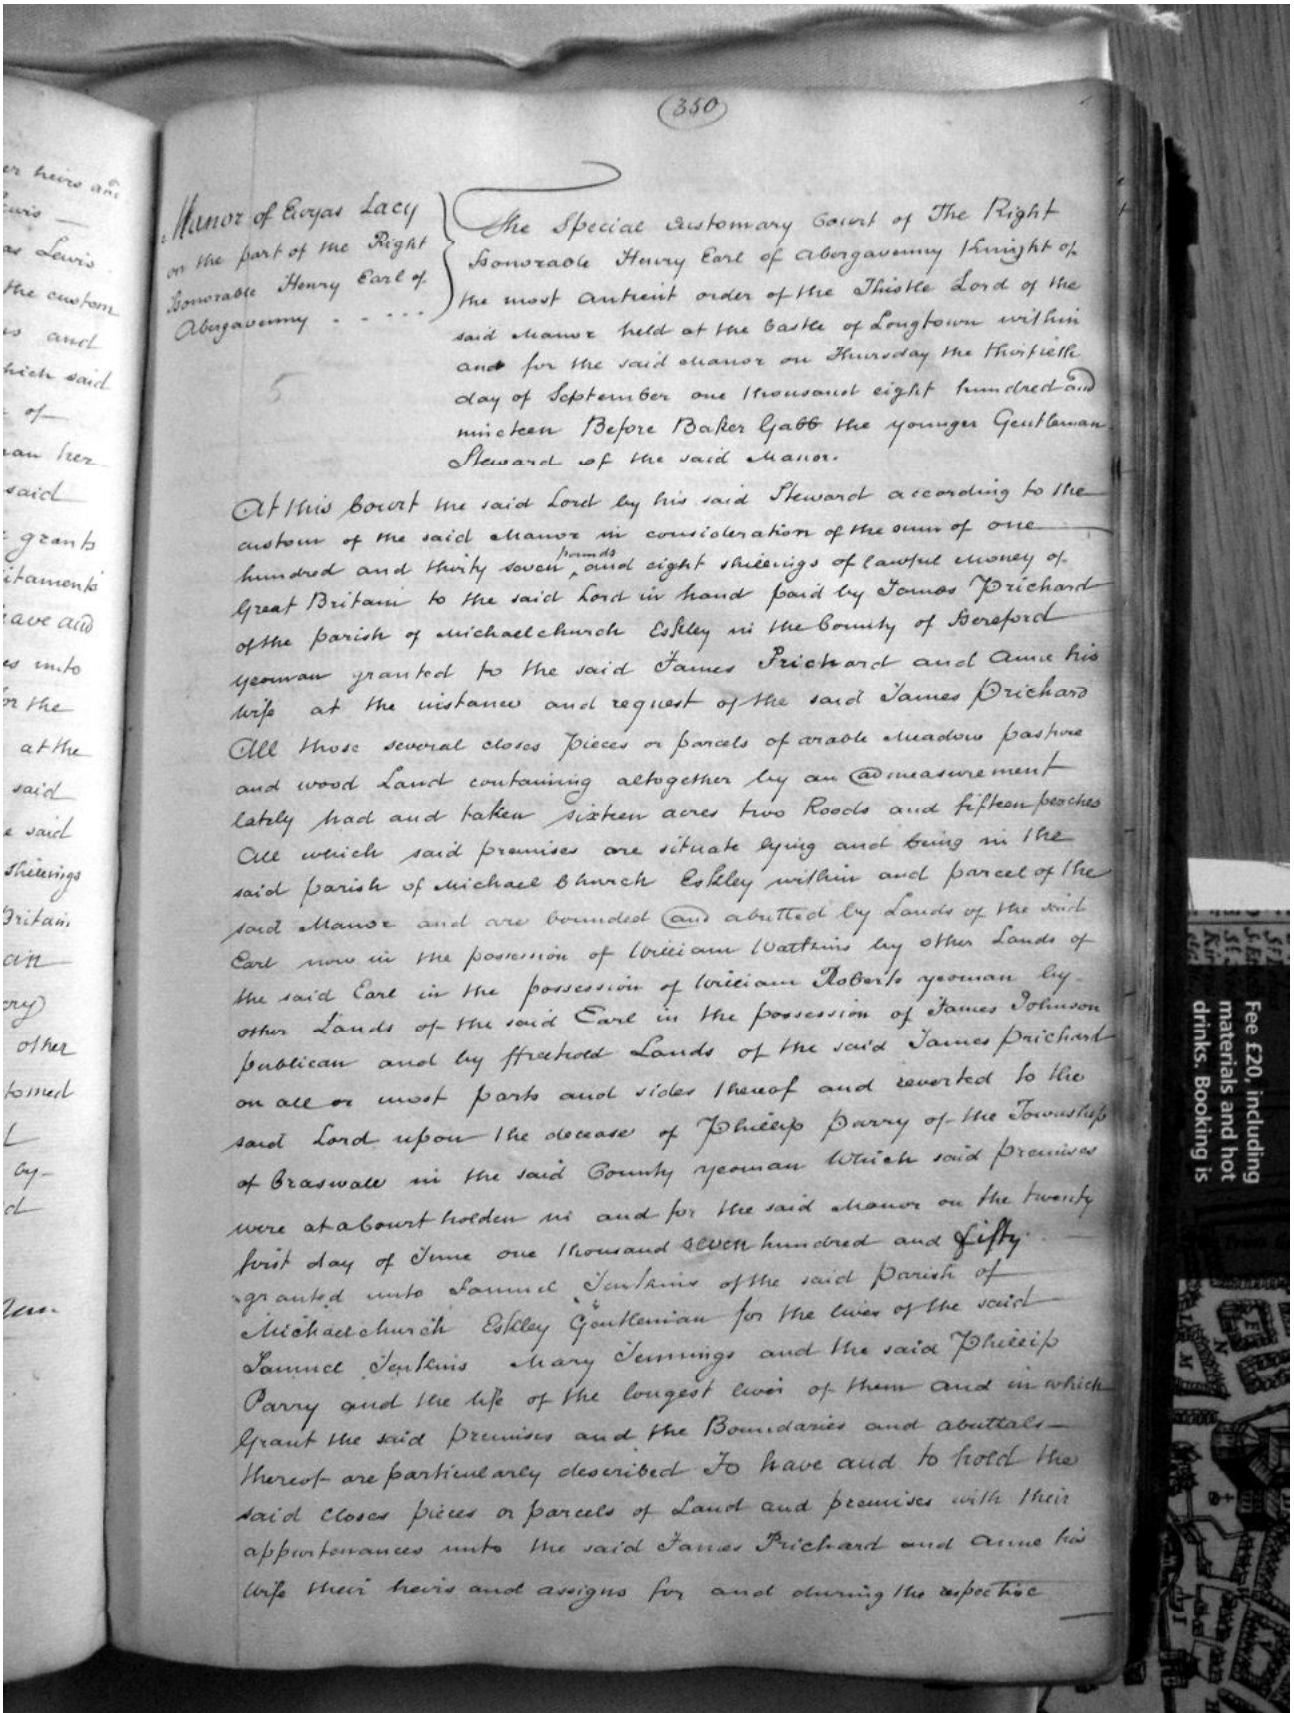 350
Manor of Ewyas Lacy
on the part of the Right
Honorable Henry Earl of
Abergavenny . - . . .
The Special Customary Court of The Right
Honorable Henry Earl of Abergavenny Knight of
the most antient order of the Thistle Lord of the
said Manor held at the Castle of Longtown within
and for the said Manor on Thursday the thirtieth
day of September one thousand eight hundred and
nineteen Before Baker Gabb the younger Gentleman
Steward of the said Manor.
5
At this Court the said Lord by his said Steward according to the
custom of the said Manor in consideration of the sum of one
hundred and thirty seven pounds and eight shillings of lawful money of
Great Britain to the said Lord in hand paid by James Prichard
of the parish of Michaelchurch Eskley in the County of Hereford
yeoman granted to the said James Prichard and Anne his
wife at the instance and request of the said James Prichard
All those several closes pieces or parcels of arable Meadow pasture
and wood Land containing altogether by an admeasurement
lately had and taken sixteen acres two Roods and fifteen peaches
All which said premises are situate lying and being in the
said parish of Michael Church Eskley within and parcel of the
said Manor and are bounded and abutted by Lands of the said
Earl now in the possession of William Watkins by other Lands of
the said Earl in the possession of William Roberts yeoman by
other Lands of the said Earl in the possession of James Johnson
publican and by ffreehold Lands of the said James Prichard
on all or most parts and sides thereof and reverted to the
said Lord upon the decease of Phillip Parry of the Township
of Craswall in the said County yeoman Which said premises
were at a Court holden in and for the said Manor on the twenty
first day of June one thousand seven hundred and fifty
granted unto Samuel Jenkins of the said parish of
Michaelchurch Eskley Gentleman for the lives of the said
Samuel Jenkins Mary Jennings and the said Phillip
Parry and the life of the longest liver of them and in which
Grant the said premises and the Boundaries and abuttals
thereof are particularly described To have and to hold the
said closes pieces or parcels of Land and premises with their
appurtenances unto the said James Prichard and Anne his
wife their heirs and assigns for and during the respective
er heirs and
ewis
as Lewis
the custom
and
hich said
of
an her
said
grants
itaments
ave and
es unto
or the
at the
said
e said
shillings
Britain
other
tomed
by
Fee £20, including
materials and hot
drinks. Booking is